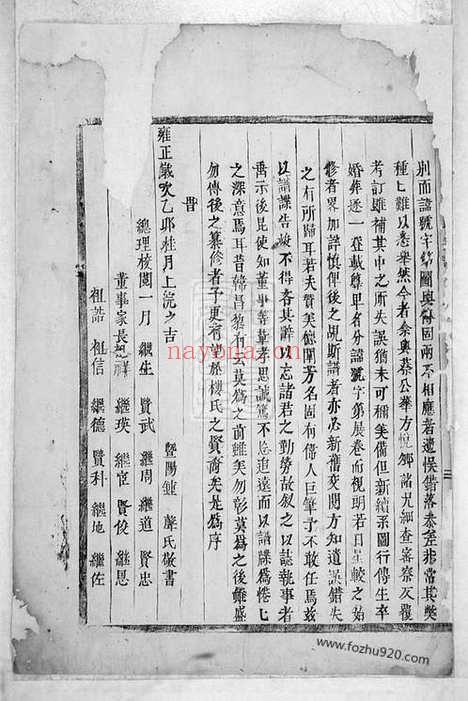 荆而諱號字第圖與錄固兩不相應者遺悞錯落泰差非常其獘
種匕難以悉畢然今者余與蔡公華方悅鄉諸兄細查審察反覆
考訂雖補其中之所失誤猶未可稱美備但新續系圖行傳生卒
婚葬逐一登載尊卑名分諱號字第展卷而視明若日星較之始
修者畧加詳慎俾後之覩斯譜者亦必新舊交閱方知遺誤錯失
之有所歸耳若夫贊美德閥芳名固有偉人巨筆予不敢任焉茲
以譜諜告竣不得吝其辭以忘諸君之勤勞故叙之以誌執事者
垂示後昆使知董事等輩孝思誠篤不忘追遠而以譜牒爲惓匕
之深意焉耳昔韓昌黎有云莫爲之前雖美勿彰莫爲之後雖盛
勿傳後之纂修者予更有望於樓氏之賢裔矣是爲序
昔
雍正歲次乙卯桂月上浣之吉
暨陽鍾 氏敬書
總理校閱一月 繼生 賢武 繼周 繼道 賢忠
董事家長 祥 繼瑛 繼宦 賢俊 繼恩
祖誥 祖信 繼德 賢科 繼地 繼佐
nayona.cn
www.fozhu920.com